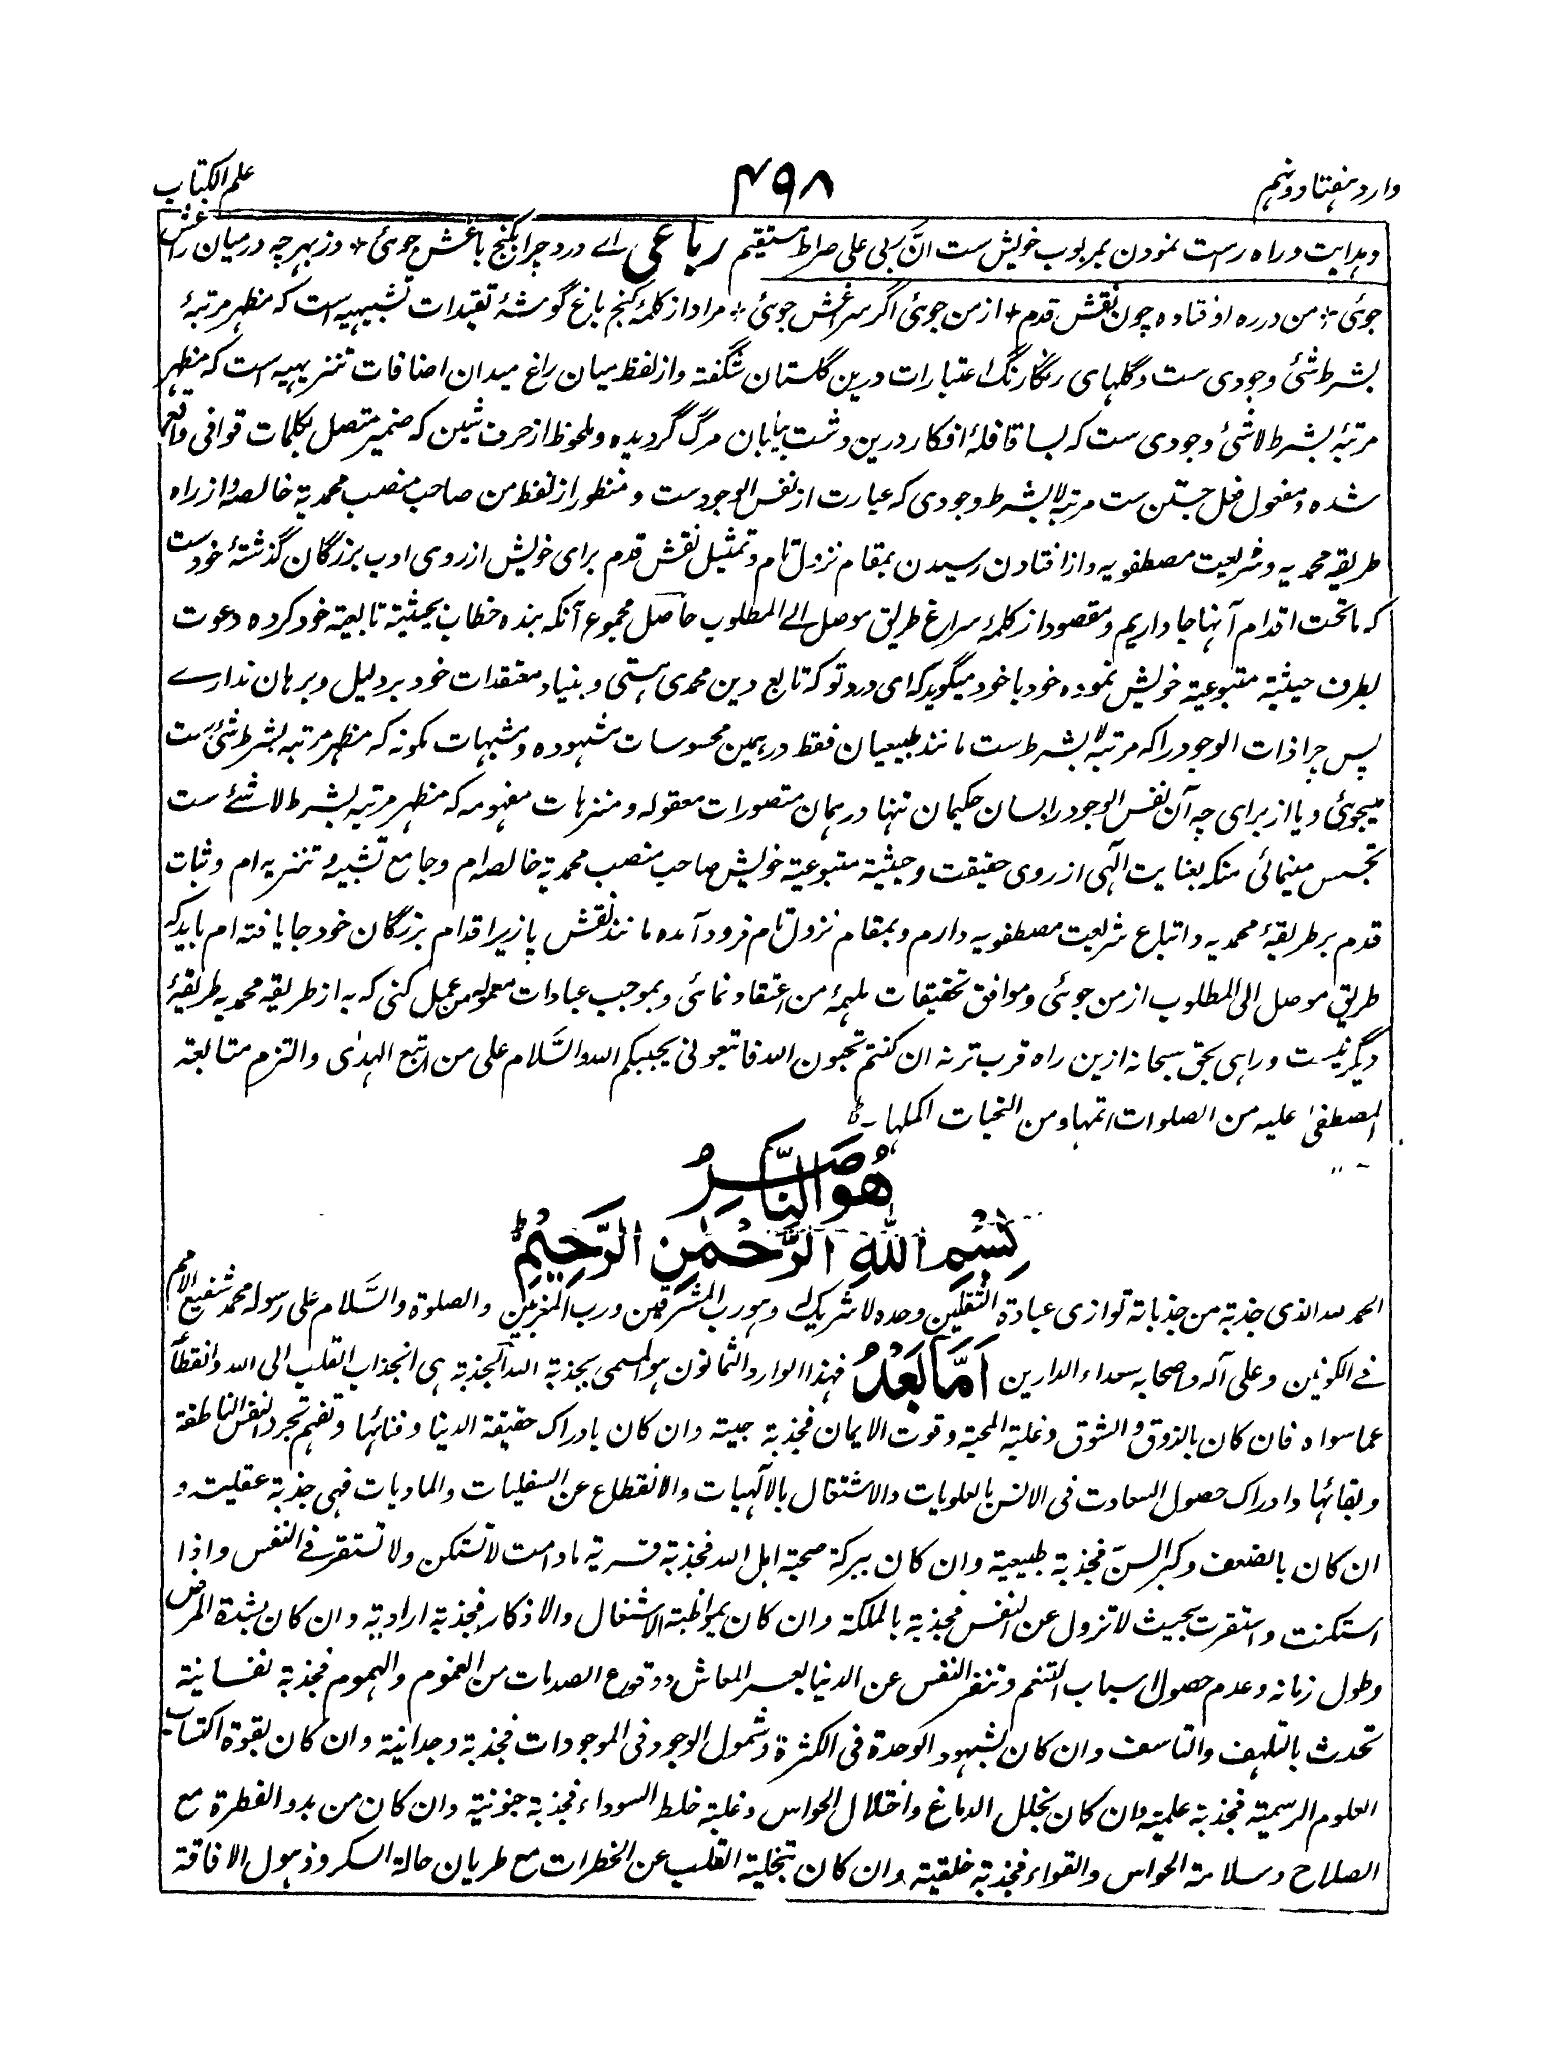 وارد هفتاد و نهم
۴۹۸
علم الکتاب
و هدایت و راه راست نمودن بمربوب خویش ست انّ ربی علی صراط مستقیم رباعی اے درد چرا بکنج باغش جوئی * وز بهر چه در میان راغش
جوئی * من در ره او فتاده چون نقش قدم * از من جوئی اگر سراغش جوئی * مراد از کلمۂ کنج باغ گوشۂ تقیدات تشبیهیه است که مظهر مرتبۂ
بشرط شئ وجودی ست و گلهای رنگارنگ اعتبارات درین گلستان شگفته و از لفظ میان راغ میدان اضافات تنزیهیه است که مظهر
مرتبۂ بشرط لا شئ وجودی ست که بسا قافلۂ افکار درین دشت بیابان مرگ گردیده و ملحوظ از حرف شین که ضمیر متصل بکلمات قوافی واقع
شده و مفعول فعل جستن ست مرتبۂ لا بشرط وجودی که عبارت از نفس الوجودست و منظور از لفظ من صاحب منصب محمدیۃ خالصه و از راه
طریقه محمدیه و شریعت مصطفویه و از افتادن رسیدن بمقام نزول تام و تمثیل نقش قدم برای خویش از روی ادب بزرگان گذشتۂ خودست
که ما تحت اقدام آنها جا داریم و مقصود از کلمۂ سراغ طریق موصل الے المطلوب حاصل مجموع آنکه بنده خطاب بحیثیۃ تابعیۃ خود کرده دعوت
بطرف حیثیۃ متبوعیۃ خویش نموده خود با خود میگوید که ای درد تو که تابع دین محمدی هستی و بنیاد معتقدات خود بر دلیل و برهان ندارے
پس چرا ذات الوجود را که مرتبۂ لا بشرط ست مانند طبیعیان فقط در همین محسوسات مشهوده و مشبهات مکونه که مظهر مرتبه بشرط شئ ست
میجوئی و یا از برای چه آن نفس الوجود را بسان حکیمان تنها در همان متصورات معقوله و منزهات مفهومه که مظهر مرتبه بشرط لا شئے ست
تجسس مینمائی منکه بعنایت الٰهی از روی حقیقت و حیثیۃ متبوعیۃ خویش صاحب منصب محمدیۃ خالصه ام و جامع تشبیه و تنزیه ام و ثبات
قدم بر طریقۂ محمدیه و اتباع شریعت مصطفویه دارم و بمقام نزول تام فرود آمده مانند نقش پا زیر اقدام بزرگان خود جا یافته ام باید که
طریق موصل الی المطلوب از من جوئی و موافق تحقیقات ملهمۂ من اعتقاد نمائی و بموجب عبادات معموله من عمل کنی که به از طریقه محمدیه طریقۂ
دیگر نیست و راهی بحق سبحانه ازین راه قرب تر نه ان کنتم تحبون الله فاتبعونی یحببکم الله والسَّلام علی من اتبع الهدٰی والتزم متابعۃ
المصطفیٰ علیه من الصلوات اتمها و من التحیات اکملها
هُوَ النَّاصِرُ
بِسْمِ اللهِ الرَّحْمٰنِ الرَّحِیْمِ
الحمد لله الذی جذبۃ من جذباته توازی عبادة الثقلین وحده لا شریک له و هو رب المشرقین و رب المغربین والصلوة والسَّلام علی رسوله محمد شفیع الامم
فے الکونین و علی آله و اصحابه سعداء الدارین اَمَّا بَعْدُ فهذا الوارد الثمانون هو المسمی بجذبۃ الله الجذبۃ هی انجذاب القلب الی الله وانقطاعه
عما سواه فان کان بالذوق والشوق و غلبۃ المحبۃ و قوت الایمان فجذبۃ حبیۃ وان کان بادراک حقیقۃ الدنیا و فنائها و تفهم تجرد النفس الناطقۃ
و بقائها و ادراک حصول السعادت فی الانس بالعلویات والاشتغال بالآلهیات والانقطاع عن السفلیات والمادیات فهی جذبۃ عقلیۃ و
ان کان بالضعف و کبر السنّ فجذبۃ طبیعیۃ وان کان ببرکۃ صحبۃ اهل الله فجذبۃ قسریۃ ما دامت لا تستکن ولا تستقر فے النفس و اذا
استکنت و استقرت بحیث لا تزول عن النفس فجذبۃ بالملکۃ وان کان بمواظبۃ الاشغال والاذکار فجذبۃ ارادیۃ وان کان بشدة المرض
و طول زمانه و عدم حصول اسباب التنعم و تنفر النفس عن الدنیا بعسر المعاش و وقوع الصدمات من الغموم والهموم فجذبۃ نفسانیۃ
تحدث بالتلهف والتاسف وان کان بشهود الوحدة فی الکثرة و شمول الوجود فی الموجودات فجذبۃ وجدانیۃ وان کان بقوة اکتساب
العلوم الرسمیۃ فجذبۃ علمیۃ وان کان بخلل الدماغ و اختلال الحواس و غلبۃ خلط السوداء فجذبۃ جنونیۃ وان کان من بدو الفطرة مع
الصلاح و سلامۃ الحواس والقواء فجذبۃ خلقیۃ وان کان بتخلیۃ القلب عن الخطرات مع طریان حالۃ السکر و ذهول الافاقۃ